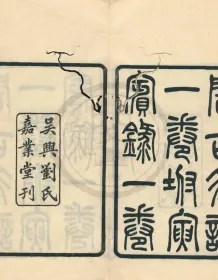 一卷坿寅
賓錄一卷
吳興劉氏
嘉業堂刊